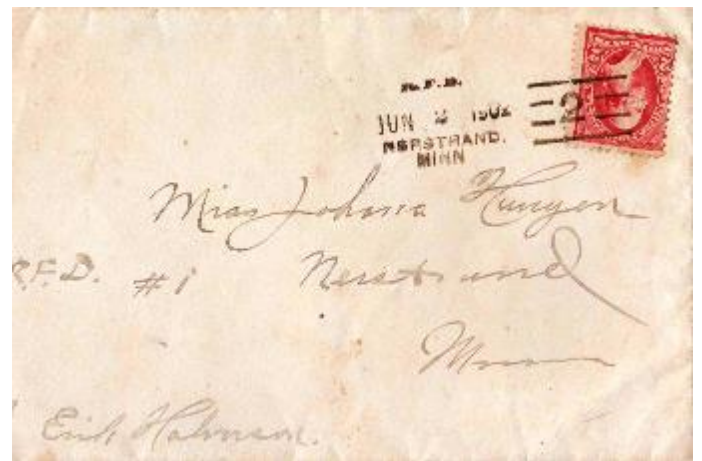 R.F.D.
JUN 2 1902
NERSTRAND.
MINN
2
Miss Johana
R.F.D. #1 Nerstrand
Minn
Erik Halvorson.